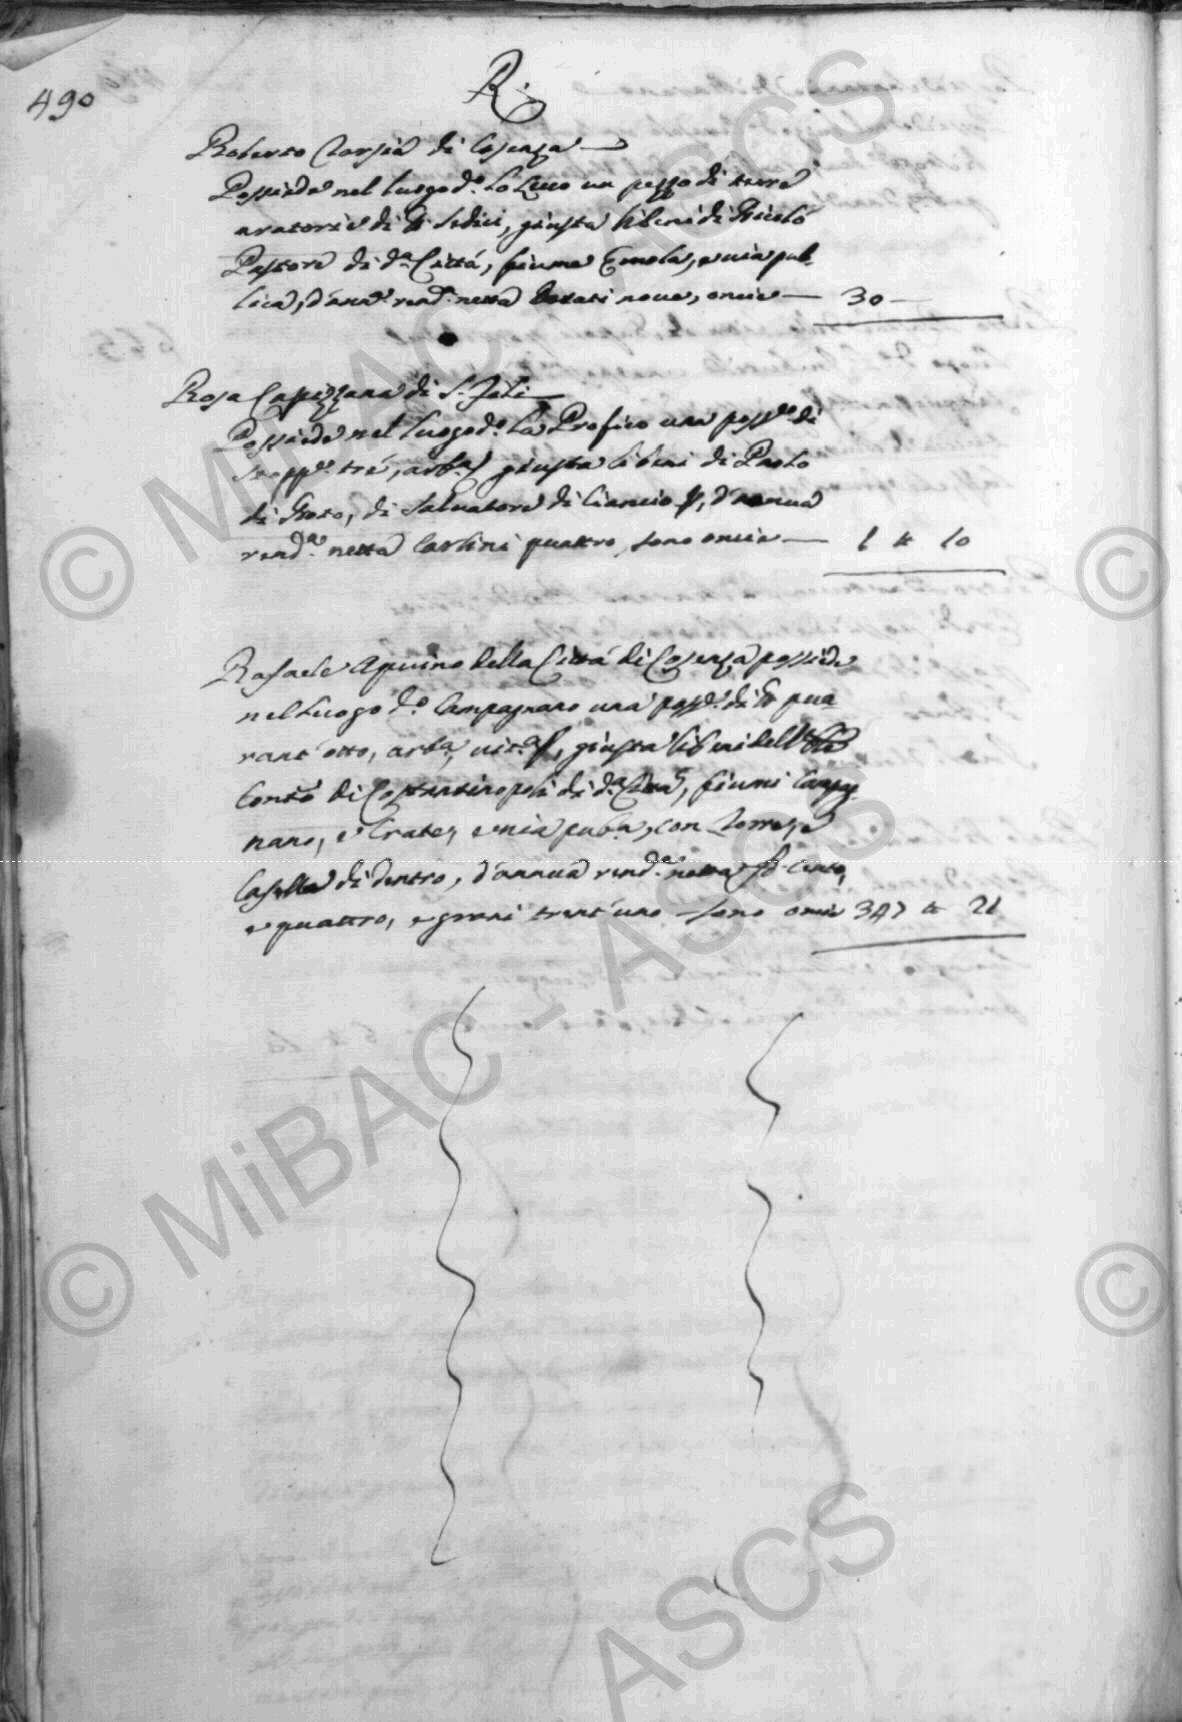 490
R.
Roberto Tarsia di Cosenza
Possiede nel luogo d.º Lo Liuo un pezzo di terre
aratorie di tt.ª sedici, giusta li beni di Nicolò
Pastore di d.ª Città, fiume Emola, e via pub-
lica, d'ann.ª rend.ª netta Docati nove, oncie 30
Rosa Capizzana di S. Fili
Possiede nel luogo d.º La Profico una poss.ne di
stopp.e tré, arb.ta giusta li beni di Paolo
di Noto, di Salvatore di Ciancio, d'annua
rend.ª netta Carlini quattro, sono oncie 1 10
Rafaele Aquino della Città di Cosenza possiede
nel Luogo d.º Campagnano una poss.e di tt.ª qua
rant'otto, arb.ª, vit.ª, giusta li beni dell
Conv.to di Costantinopoli di d.ª Città, fiumi Campag
nano, e Crate, e via pub.ª, con Torre, e
Caselle di dentro, d'annua rend.ª netta cento,
e quattro, e grani trent'uno sono oncie 347 21
© MiBAC - ASCS
© MiBAC - ASCS
ASCS
©
©